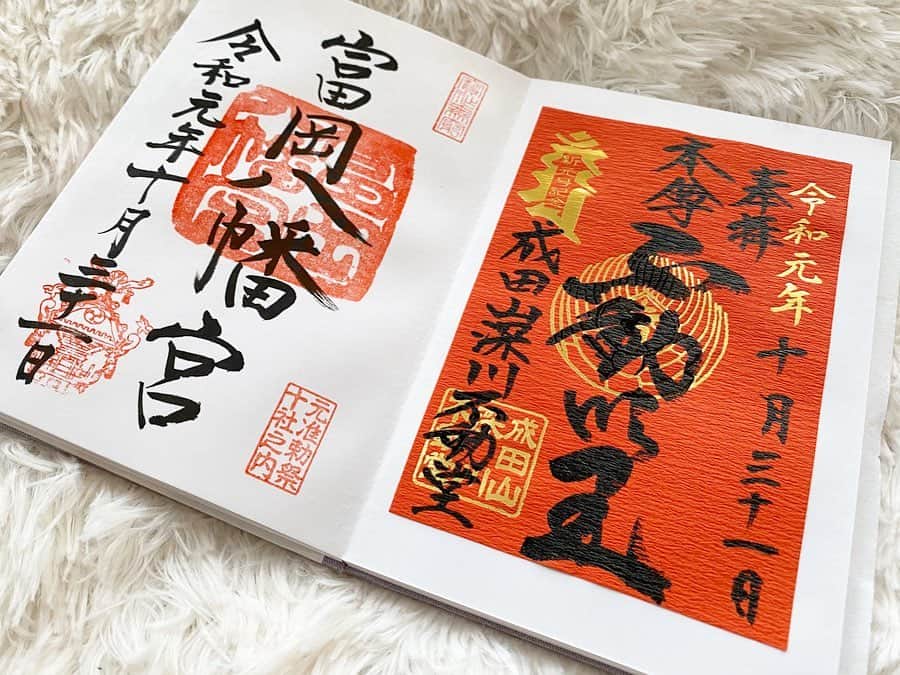 令和元年
十月三十一日
奉拝
本尊
不動明王
成田山深川不動堂
成田山
富岡八幡宮
令和元年十月三十一日
元准勅祭
十社之内